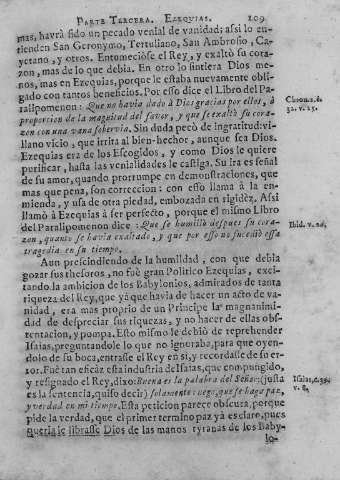 PARTE TERCERA. EZEQUIAS. 109
mas, havrà sido un pecado venial de vanidad; assi lo en-
tienden San Geronymo, Tertuliano, San Ambrosio, Ca-
yetano, y otros. Entorneciòse el Rey, y exaltò su cora-
zon, mas de lo que debia. En otro lo sintiera Dios me-
nos, mas en Ezequias, porque le estaba nuevamente obli-
gado con tantos beneficios. Por esso dice el Libro del Pa-
ralipomenon: Que no havia dado à Dios gracias por ellos, à
proporcion de la magnitud del favor, y que se exaltò su cora-
zon con una vana sobervia. Sin duda pecò de ingratitud: vi-
llano vicio, que irrita al bien-hechor, aunque sea Dios.
Ezequias era de los Escogidos, y como Dios le quiere
purificar, hasta las venialidades le castiga. Su ira es señal
de su amor, quando prorrumpe en demonstraciones, que
mas que pena, son correccion: con esso llama à la en-
mienda, y usa de otra piedad, embozada en rigidèz. Assi
llamò à Ezequias à ser perfecto, porque el mismo Libro
del Paralipomenon dice: Que se humillò despues su cora-
zon, quanto se havia exaltado, y que por esso no sucediò essa
tragedia en su tiempo.
Aun prescindiendo de la humildad, con que debia
gozar sus thesoros, no fuè gran Politico Ezequias, exci-
tando la ambicion de los Babylonios, admirados de tanta
riqueza del Rey, que yà que havia de hacer un acto de va-
nidad, era mas proprio de un Principe la magnanimi-
dad de despreciar sus riquezas, y no hacer de ellas obs-
tentacion, y pompa. Esto mismo le debiò de reprehender
Isaias, preguntandole lo que no ignoraba, para que oyen-
dolo de su boca, entrasse el Rey en sì, y recordasse de su er-
ror. Fuè tan eficàz esta industria de Isaias, que compungido,
y resignado el Rey, dixo: Buena es la palabra del Señor: (justa
es la sentencia, quiso decir) solamente ruego, que se haga paz,
y verdad en mi tiempo. Esta peticion parece obscura, porque
pide la verdad, que el primer termino paz yà es claro, pues
queria le librasse Dios de las manos tyranas de los Baby-
lo-
Chron. 2. c.
32. v. 25.
Ibid. v. 26.
Isaias, c. 39.
v. 8.